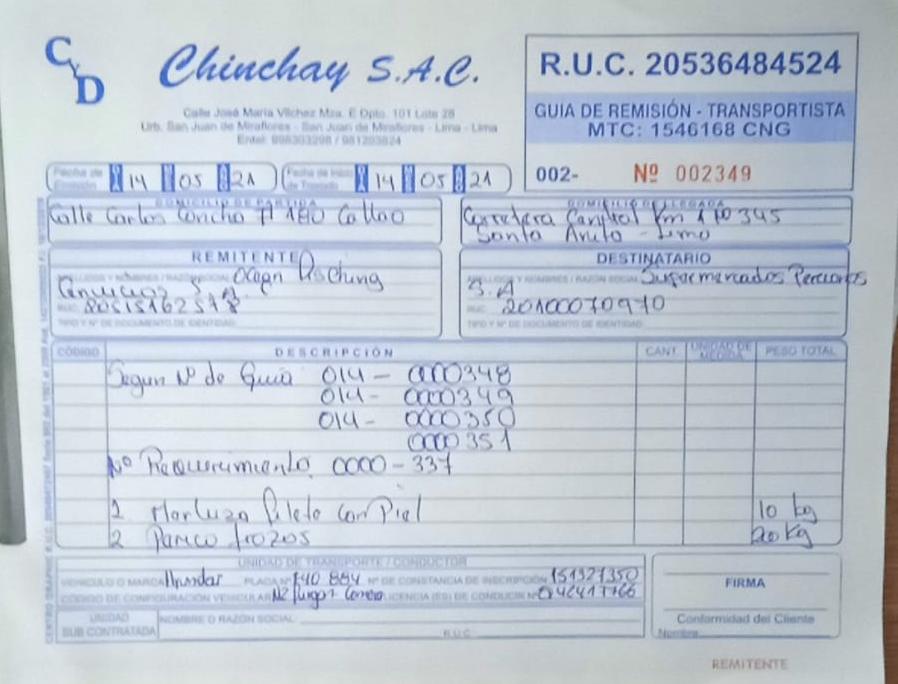 CyD
Chinchay S.A.C.
Calle José María Vilchez Mza. E Dpto. 101 Lote 28
Urb. San Juan de Miraflores - San Juan de Miraflores - Lima - Lima
R.U.C. 20536484524
GUIA DE REMISIÓN - TRANSPORTISTA
MTC: 1546168 CNG
002- Nº 002349
Fecha de Emisión 14 05 21
Fecha de Inicio de Traslado 14 05 21
DOMICILIO DE PARTIDA
Calle Carlos Concha 180 Callao
DOMICILIO DE LLEGADA
Carretera Central Km 1 Nº 345
Santa Anita - Lima
REMITENTE
APELLIDOS Y NOMBRES / RAZÓN SOCIAL
RUC 20515162578
TIPO Y Nº DE DOCUMENTO DE IDENTIDAD
DESTINATARIO
APELLIDOS Y NOMBRES / RAZON SOCIAL Supermercados Peruanos
S.A
RUC 20100070970
TIPO Y Nº DE DOCUMENTO DE IDENTIDAD
CÓDIGO DESCRIPCIÓN CANT. UNIDAD DE MEDIDA PESO TOTAL
Segun Nº de Guia 014 - 0000348
014 - 0000349
014 - 0000350
0000351
Nº Requerimiento 0000 - 337
2 Merluza filete con Piel 10 kg
2 trozos 20 Kg
UNIDAD DE TRANSPORTE / CONDUCTOR
VEHICULO O MARCA Hyundai PLACA Nº Nº DE CONSTANCIA DE INSCRIPCIÓN 151927350
CÓDIGO DE CONFIGURACIÓN VEHICULAR N2 LICENCIA (ES) DE CONDUCIR Nº
UNIDAD SUB CONTRATADA
NOMBRE O RAZÓN SOCIAL:
R.U.C.
FIRMA
Conformidad del Cliente
Nombre
REMITENTE